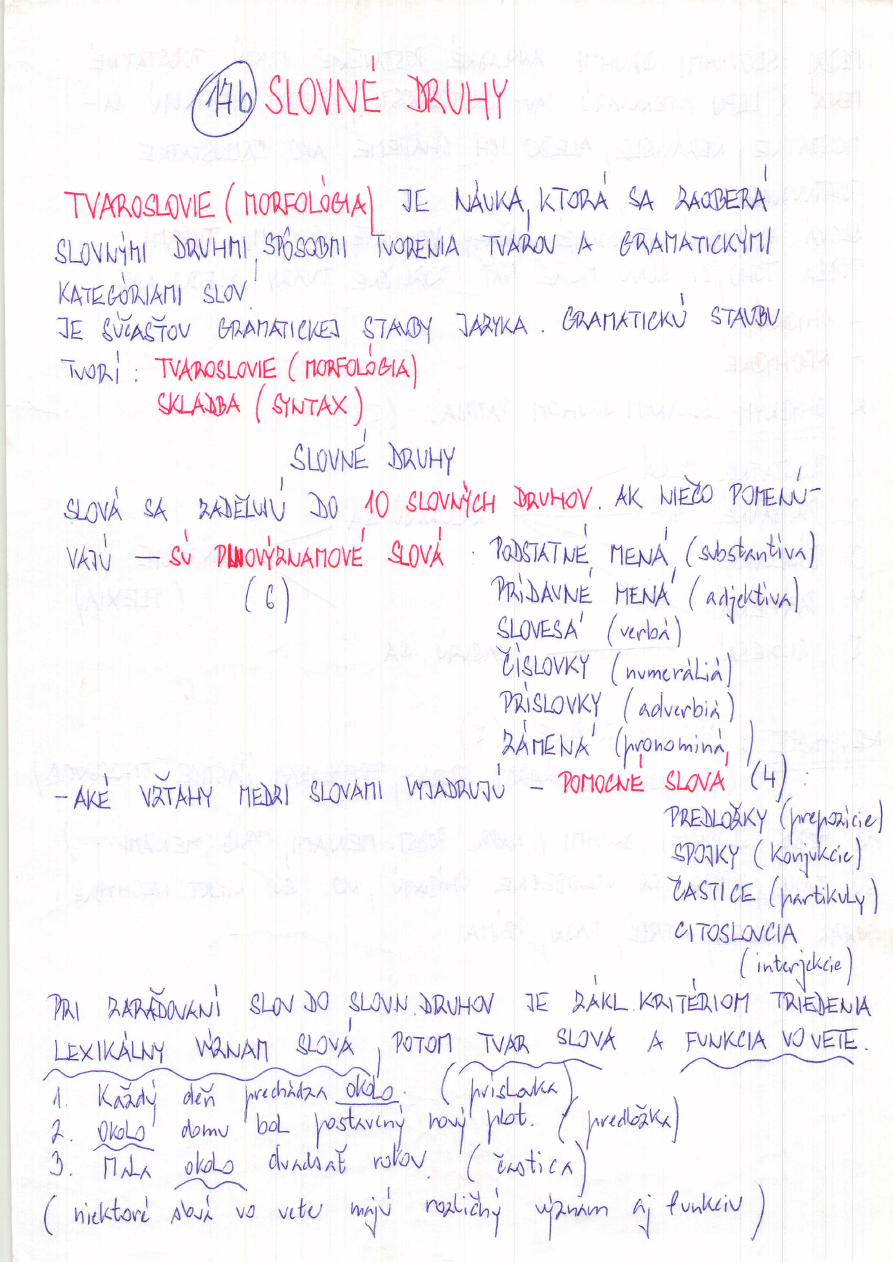 17b SLOVNÉ DRUHY
TVAROSLOVIE (MORFOLÓGIA) JE NÁUKA, KTORÁ SA ZAOBERÁ
SLOVNÝMI DRUHMI, SPÔSOBMI TVORENIA TVAROV A GRAMATICKÝMI
KATEGÓRIAMI SLOV.
JE SÚČASŤOU GRAMATICKEJ STAVBY JAZYKA. GRAMATICKÚ STAVBU
TVORÍ: TVAROSLOVIE (MORFOLÓGIA)
SKLADBA (SYNTAX)
SLOVNÉ DRUHY
SLOVÁ SA ZADEĽUJÚ DO 10 SLOVNÝCH DRUHOV. AK NIEČO POMENÚ-
VAJÚ – SÚ PLNOVÝZNAMOVÉ SLOVÁ: PODSTATNÉ MENÁ (substantíva)
(6) PRÍDAVNÉ MENÁ (adjektíva)
SLOVESÁ (verbá)
ČÍSLOVKY (numeráliá)
PRÍSLOVKY (adverbiá)
ZÁMENÁ (pronominá)
– AKÉ VZŤAHY MEDZI SLOVAMI VYJADRUJÚ – POMOCNÉ SLOVÁ (4):
PREDLOŽKY (prepozície)
SPOJKY (konjukcie)
ČASTICE (partikuly)
CITOSLOVCIA
(interjekcie)
PRI ZARAĎOVANÍ SLOV DO SLOVN. DRUHOV JE ZÁKL. KRITÉRIOM TRIEDENIA
LEXIKÁLNY VÝZNAM SLOVÁ, POTOM TVAR SLOVA A FUNKCIA VO VETE.
1. Každý deň prechádza okolo. (príslovka)
2. Okolo domu bol postavený nový plot. (predložka)
3. Mala okolo dvadsať rokov. (častica)
(niektoré slová vo vete majú rozličný význam aj funkciu)